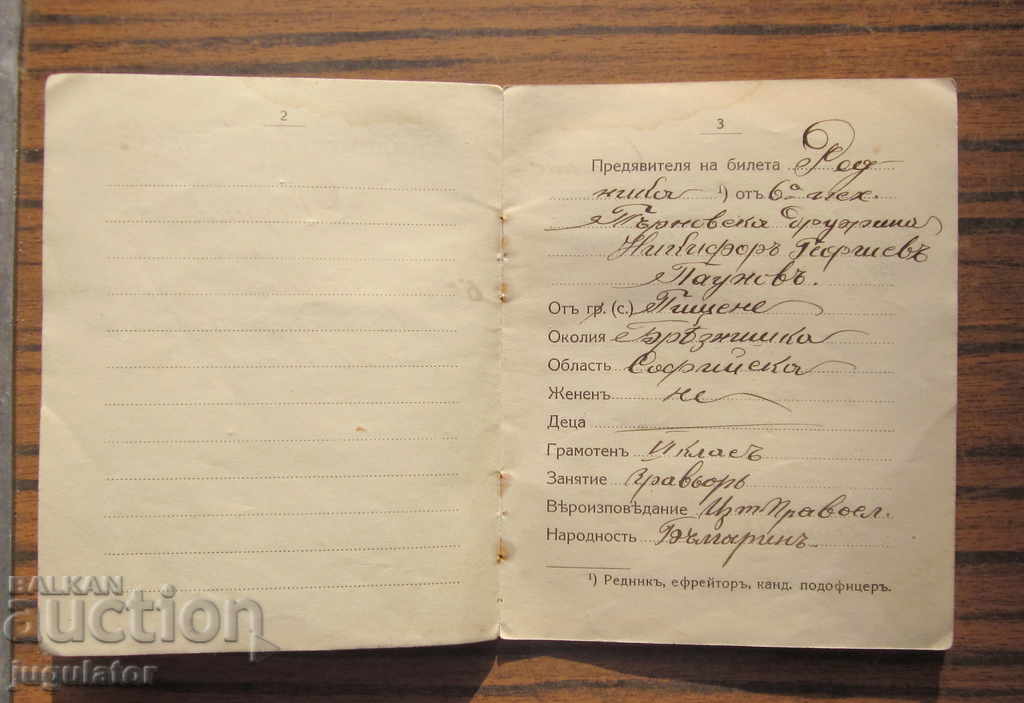 2
3
Предявителя на билета Ред
ника ¹) отъ 6а пех.
Търновска дружина
Никифоръ Георгиевъ
Пауновъ.
Отъ гр. (с.) Пищене
Околия Брѣзнишка
Область Софийска
Жененъ не
Деца
Грамотенъ II класъ
Занятие Гравьоръ
Вѣроизповѣдание Изт. Правосл.
Народность Българинъ
¹) Редникъ, ефрейторъ, канд. подофицеръ.
BALKAN
auction
jugulator